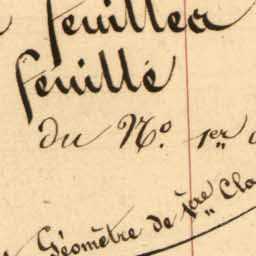 feuilles
feuille
du N.° 1er
Géomètre de 1ère Cla